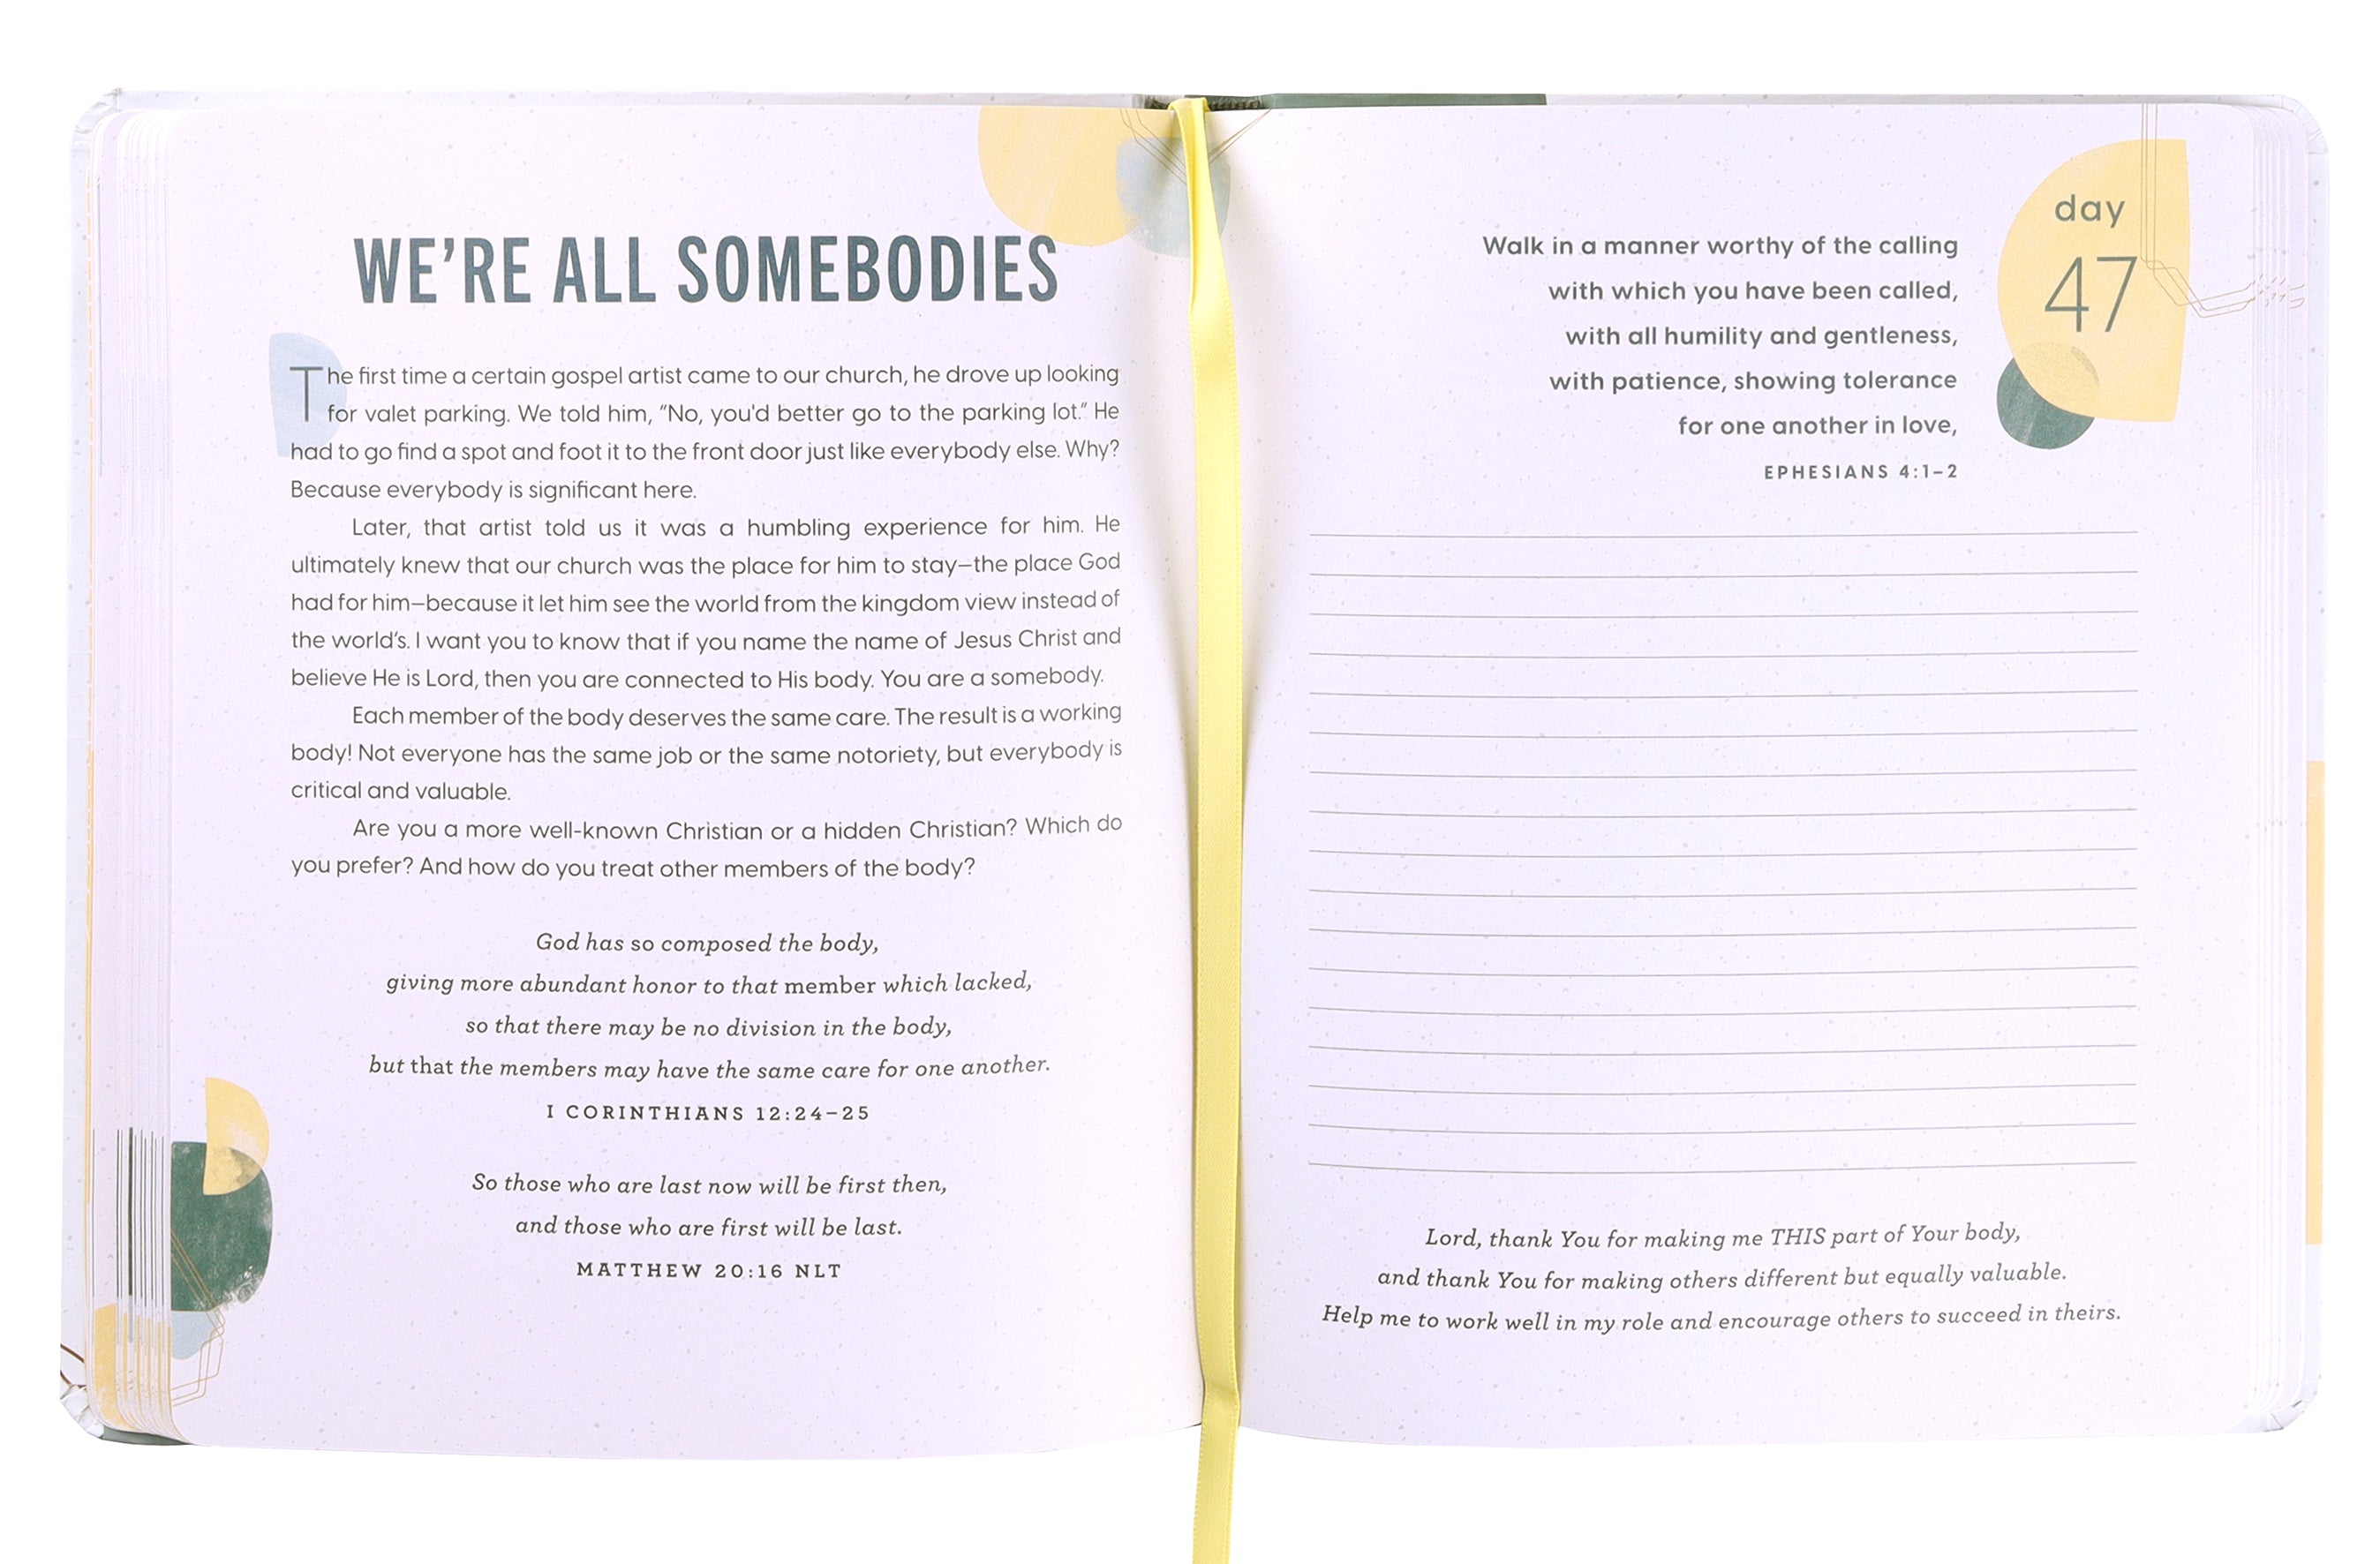 WE’RE ALL SOMEBODIES
The first time a certain gospel artist came to our church, he drove up looking
for valet parking. We told him, “No, you'd better go to the parking lot.” He
had to go find a spot and foot it to the front door just like everybody else. Why?
Because everybody is significant here.
Later, that artist told us it was a humbling experience for him. He
ultimately knew that our church was the place for him to stay—the place God
had for him—because it let him see the world from the kingdom view instead of
the world’s. I want you to know that if you name the name of Jesus Christ and
believe He is Lord, then you are connected to His body. You are a somebody.
Each member of the body deserves the same care. The result is a working
body! Not everyone has the same job or the same notoriety, but everybody is
critical and valuable.
Are you a more well-known Christian or a hidden Christian? Which do
you prefer? And how do you treat other members of the body?
God has so composed the body,
giving more abundant honor to that member which lacked,
so that there may be no division in the body,
but that the members may have the same care for one another.
I CORINTHIANS 12:24–25
So those who are last now will be first then,
and those who are first will be last.
MATTHEW 20:16 NLT
day
47
Walk in a manner worthy of the calling
with which you have been called,
with all humility and gentleness,
with patience, showing tolerance
for one another in love,
EPHESIANS 4:1–2
Lord, thank You for making me THIS part of Your body,
and thank You for making others different but equally valuable.
Help me to work well in my role and encourage others to succeed in theirs.